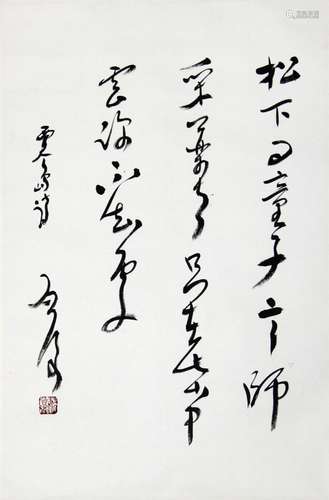 松下問童子言師
采藥去只在此山中
雲深不知處
賈島詩